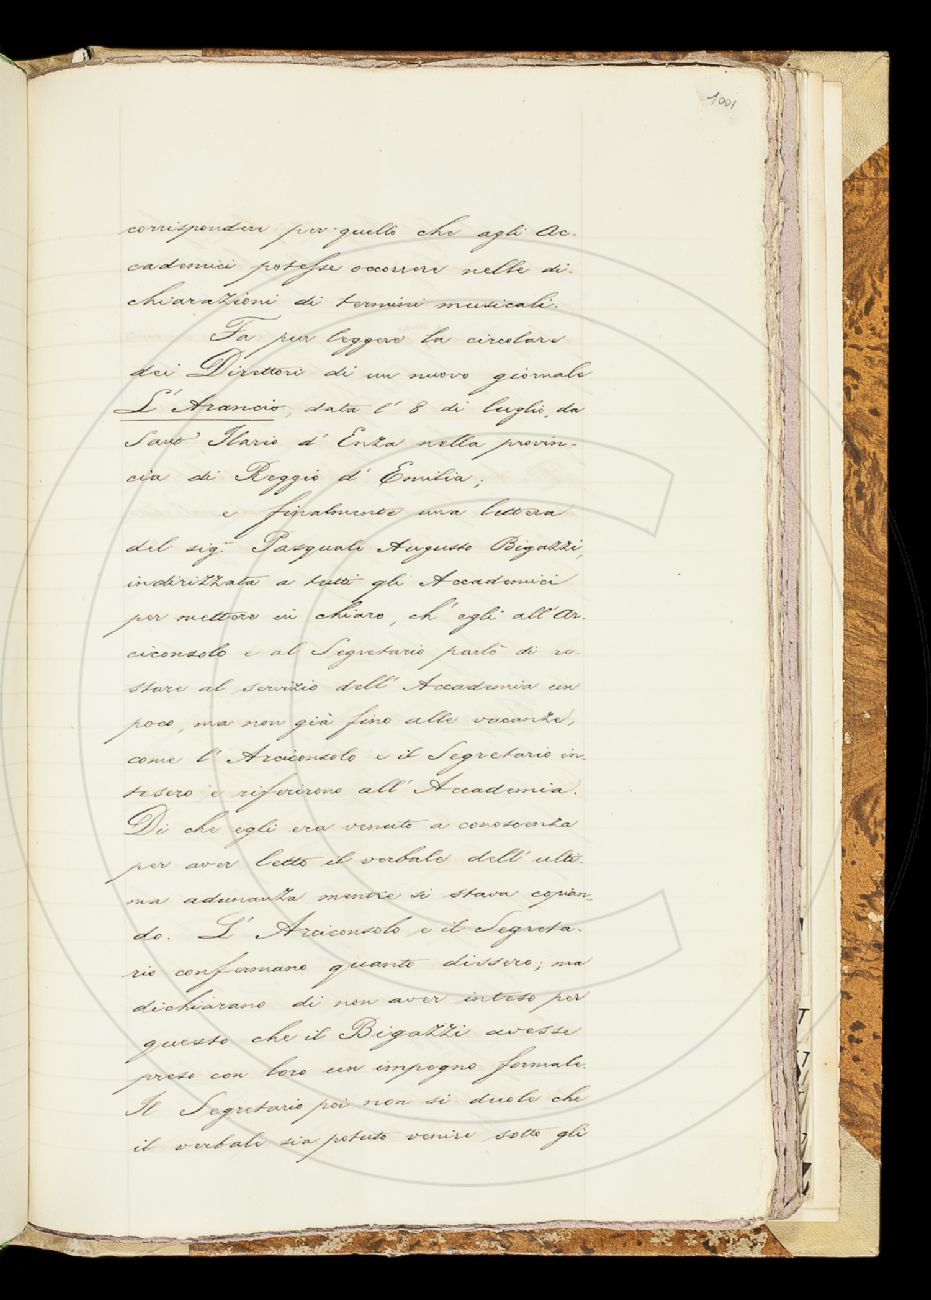 1001
corrispondere per quello che agli Ac-
cademici potesse occorrere nelle di-
chiarazioni di termini musicali.
Fa pur leggere la circolare
dei Direttori di un nuovo giornale
L' Arancio, data l' 8 di luglio, da
Sant' Ilario d' Enza nella provin-
cia di Reggio d' Emilia;
e finalmente una lettera
del sig.r Pasquale Augusto Bigazzi,
indirizzata a tutti gli Accademici
per mettere in chiaro, ch' egli all' Ar-
ciconsolo e al Segretario parlò di re-
stare al servizio dell' Accademia un
poco, ma non già fino alle vacanze,
come l' Arciconsolo e il Segretario in-
tesero e riferirono all' Accademia.
Di che egli era venuto a conoscenza
per aver letto il verbale dell' ulti-
ma adunanza mentre si stava copian-
do. L' Arciconsolo e il Segreta-
rio confermano quanto dissero; ma
dichiarano di non aver inteso per
questo che il Bigazzi avesse
preso con loro un impegno formale.
Il Segretario poi non si duole che
il verbale sia potuto venire sotto gli